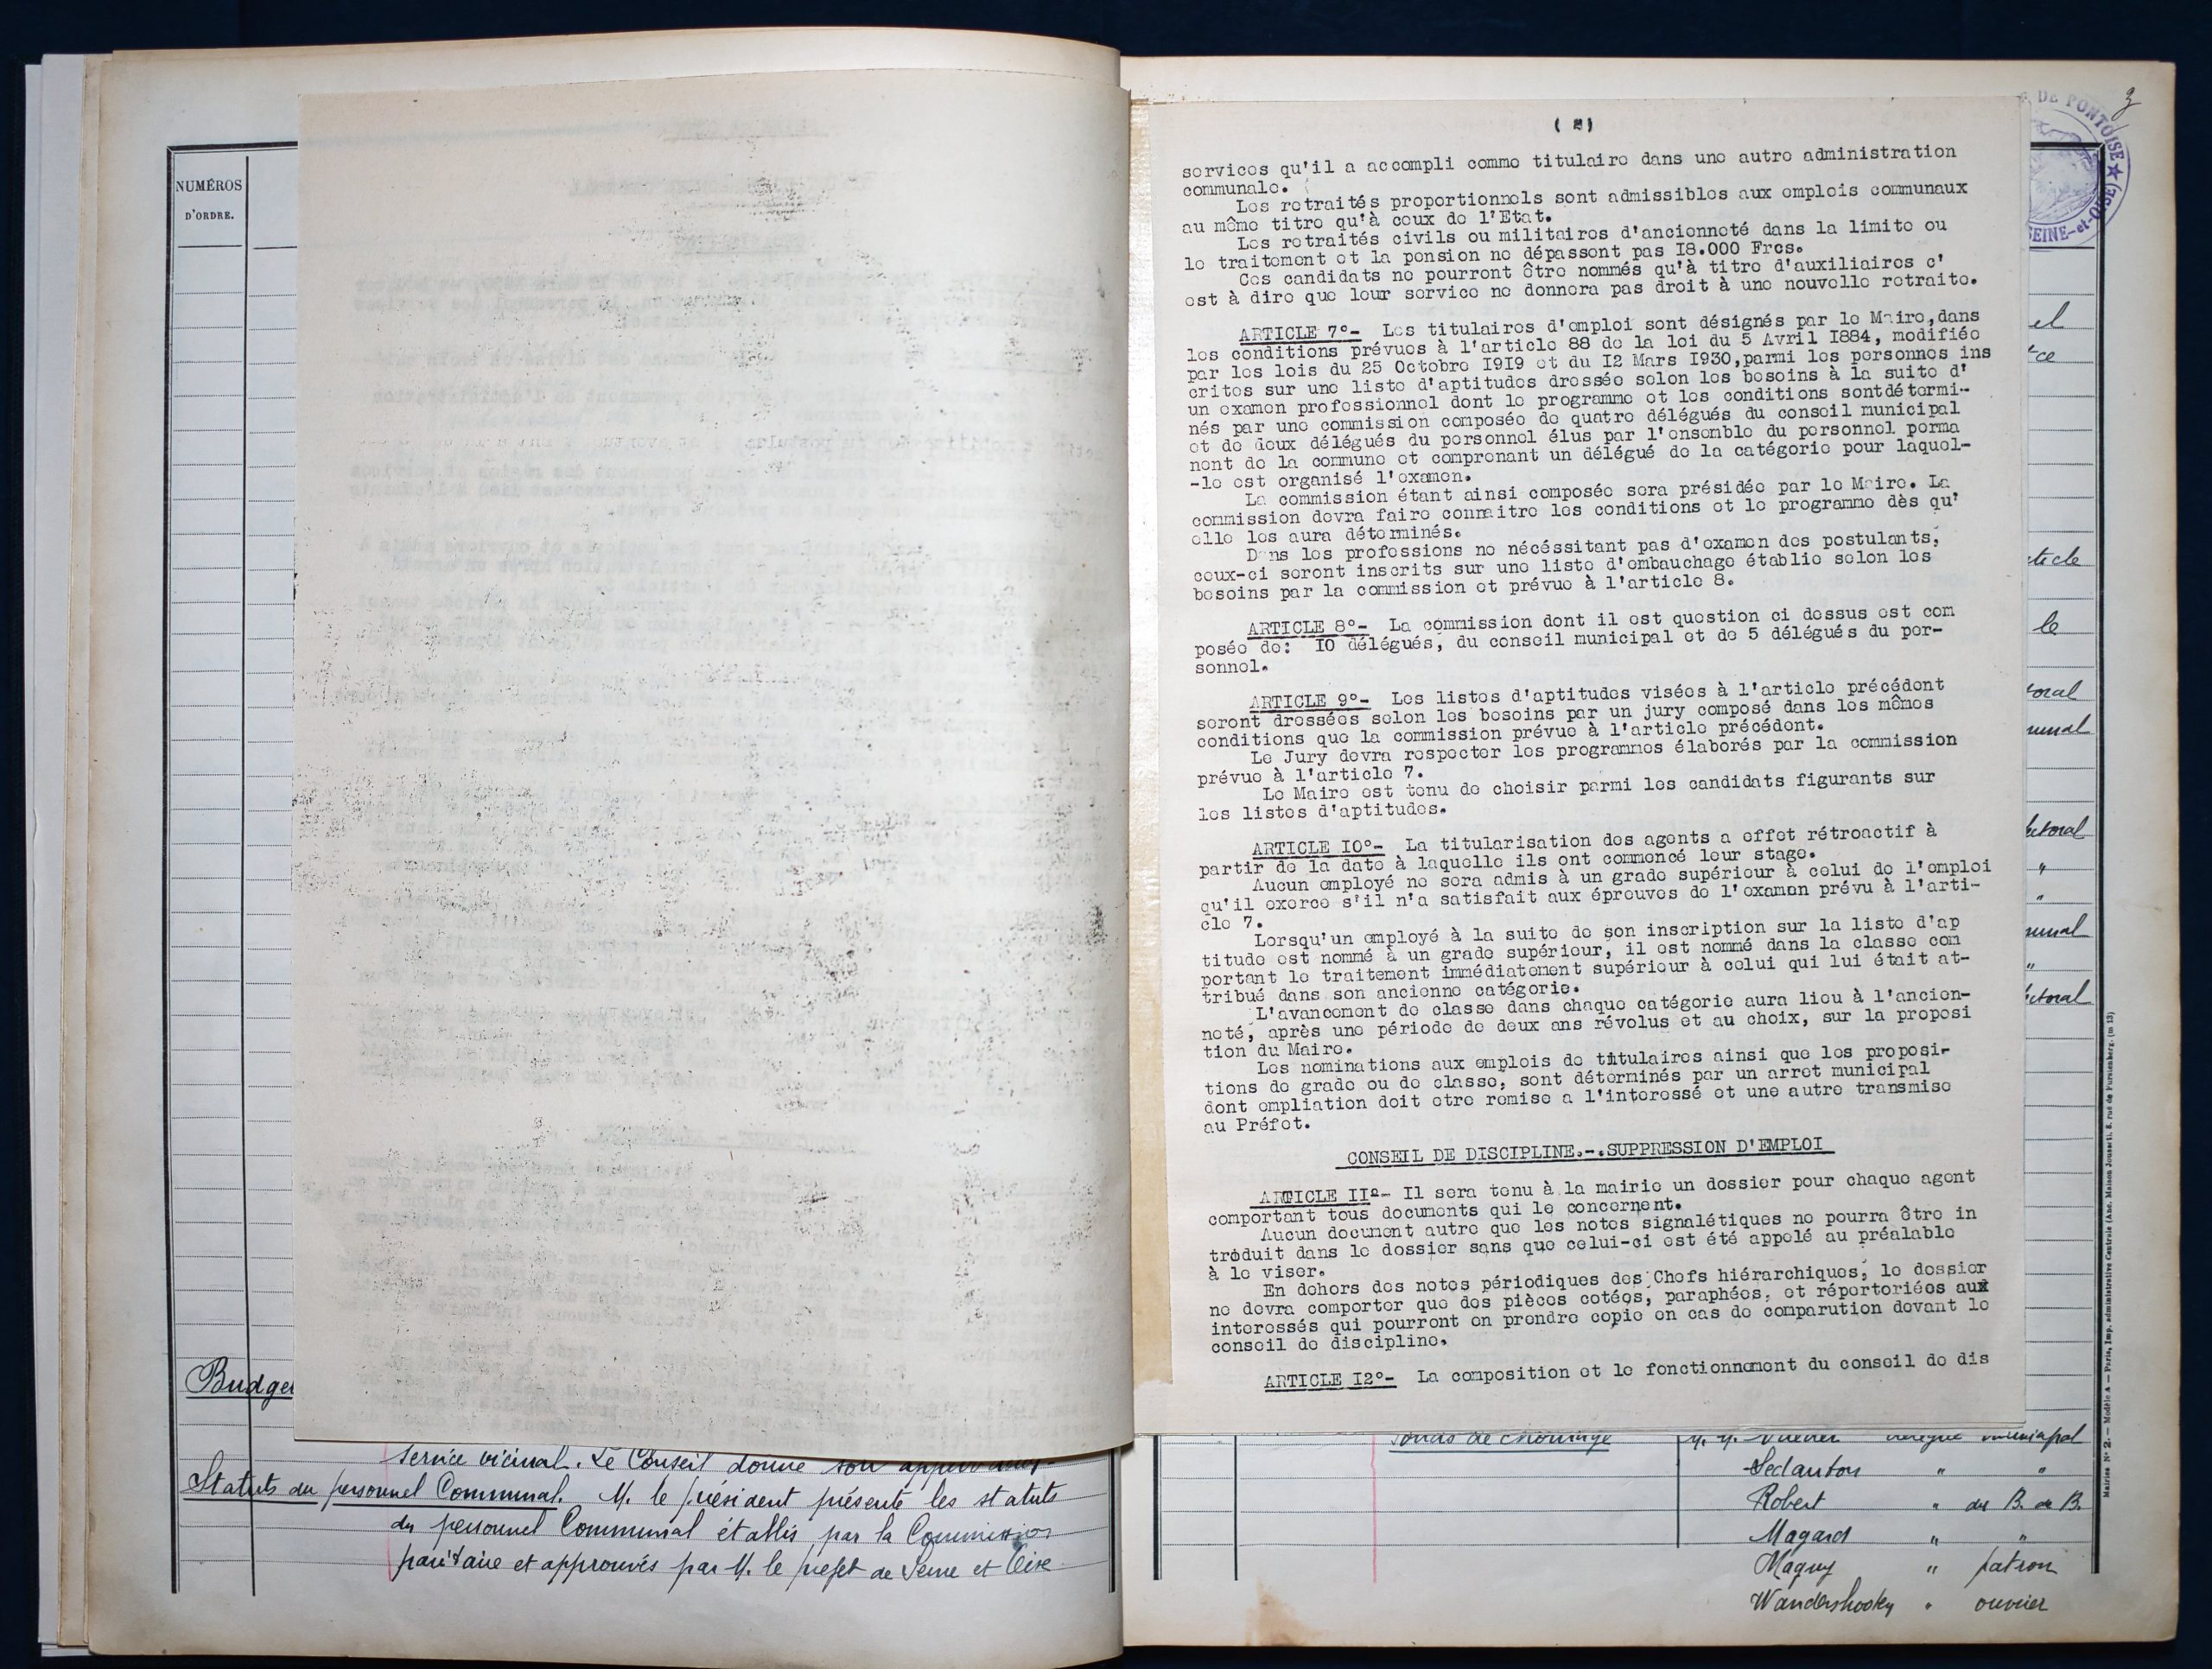 NUMÉROS
D'ORDRE.
Budge
service vicinal. Le Conseil donne son
Statuts du personnel Communal. M. le président présente les statuts
du personnel Communal établis par la Commission
paritaire et approuvés par M. le préfet de Seine et Oise
(2)
services qu'il a accompli comme titulaire dans une autre administration
communale.
Les retraités proportionnels sont admissibles aux emplois communaux
au même titre qu'à ceux de l'Etat.
Les retraités civils ou militaires d'ancienneté dans la limite ou
le traitement et la pension ne dépassent pas I8.000 Frcs.
Ces candidats ne pourront être nommés qu'à titre d'auxiliaires c'
est à dire que leur service ne donnera pas droit à une nouvelle retraite.
ARTICLE 7°- Les titulaires d'emploi sont désignés par le Maire,dans
les conditions prévues à l'article 88 de la loi du 5 Avril I884, modifiée
par les lois du 25 Octobre I9I9 et du I2 Mars I930,parmi les personnes ins
crites sur une liste d'aptitudes dressée selon les besoins à la suite d'
un examen professionnel dont le programme et les conditions sontdétermi-
nés par une commission composée de quatre délégués du conseil municipal
et de deux délégués du personnel élus par l'ensemble du personnel perma
nent de la commune et comprenant un délégué de la catégorie pour laquel-
-le est organisé l'examen.
La commission étant ainsi composée sera présidée par le Maire. La
commission devra faire connaitre les conditions et le programme dès qu'
elle les aura déterminés.
Dans les professions ne nécéssitant pas d'examen des postulants,
ceux-ci seront inscrits sur une liste d'embauchage établie selon les
besoins par la commission et prévue à l'article 8.
ARTICLE 8°- La commission dont il est question ci dessus est com
posée de: IO délégués, du conseil municipal et de 5 délégués du per-
sonnel.
ARTICLE 9°- Les listes d'aptitudes visées à l'article précédent
seront dressées selon les besoins par un jury composé dans les mêmes
conditions que la commission prévue à l'article précédent.
Le Jury devra respecter les programmes élaborés par la commission
prévue à l'article 7.
Le Maire est tenu de choisir parmi les candidats figurants sur
les listes d'aptitudes.
ARTICLE IO°- La titularisation des agents a effet rétroactif à
partir de la date à laquelle ils ont commencé leur stage.
Aucun employé ne sera admis à un grade supérieur à celui de l'emploi
qu'il exerce s'il n'a satisfait aux épreuves de l'examen prévu à l'arti-
cle 7.
Lorsqu'un employé à la suite de son inscription sur la liste d'ap
titude est nommé à un grade supérieur, il est nommé dans la classe com
portant le traitement immédiatement supérieur à celui qui lui était at-
tribué dans son ancienne catégorie.
L'avancement de classe dans chaque catégorie aura lieu à l'ancien-
neté, après une période de deux ans révolus et au choix, sur la proposi
tion du Maire.
Les nominations aux emplois de titulaires ainsi que les proposi-
tions de grade ou de classe, sont déterminés par un arret municipal
dont ampliation doit etre remise a l'interessé et une autre transmise
au Préfet.
CONSEIL DE DISCIPLINE.-.SUPPRESSION D'EMPLOI
ARTICLE II°- Il sera tenu à la mairie un dossier pour chaque agent
comportant tous documents qui le concernent.
Aucun document autre que les notes signalétiques ne pourra être in
troduit dans le dossier sans que celui-ci est été appelé au préalable
à le viser.
En dehors des notes périodiques des Chefs hiérarchiques, le dossier
ne devra comporter que des pièces cotées, paraphées, et répertoriées aux
interessés qui pourront en prendre copie en cas de comparution devant le
conseil de discipline.
ARTICLE I2°- La composition et le fonctionnement du conseil de dis
3
DE PONTOISE ★
SEINE-et-OISE)
el
ce
ticle
le
toral
unal
ctoral
"
"
unal
"
ctoral
Fonds de chômage M. M. délégué municipal
Sedanton " "
Robert " du B. de B.
Magard " "
Maguy " patron
Wandershooky " ouvrier
Mairies N° 2. — Modèle A — Paris, Imp. administrative Centrale (Anc. Maison Jousset). 8, rue de Furstenberg. (m 13)